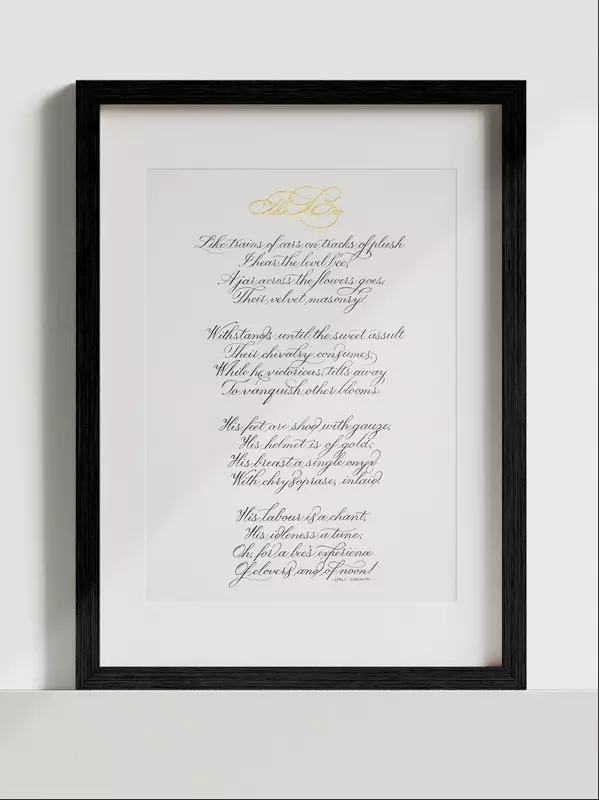 The Bee
Like trains of cars on tracks of plush
I hear the level bee;
A jar across the flowers goes,
Their velvet masonry
Withstands until the sweet assult
Their chivalry consumes,
While he, victorious, tilts away
To vanquish other blooms.
His feet are shod with gauze,
His helmet is of gold;
His breast a single onyx
With chrysoprase, inlaid.
His labour is a chant,
His idleness a tune;
Oh, for a bee's experience
Of clovers and of noon!
-EMILY DICKINSON